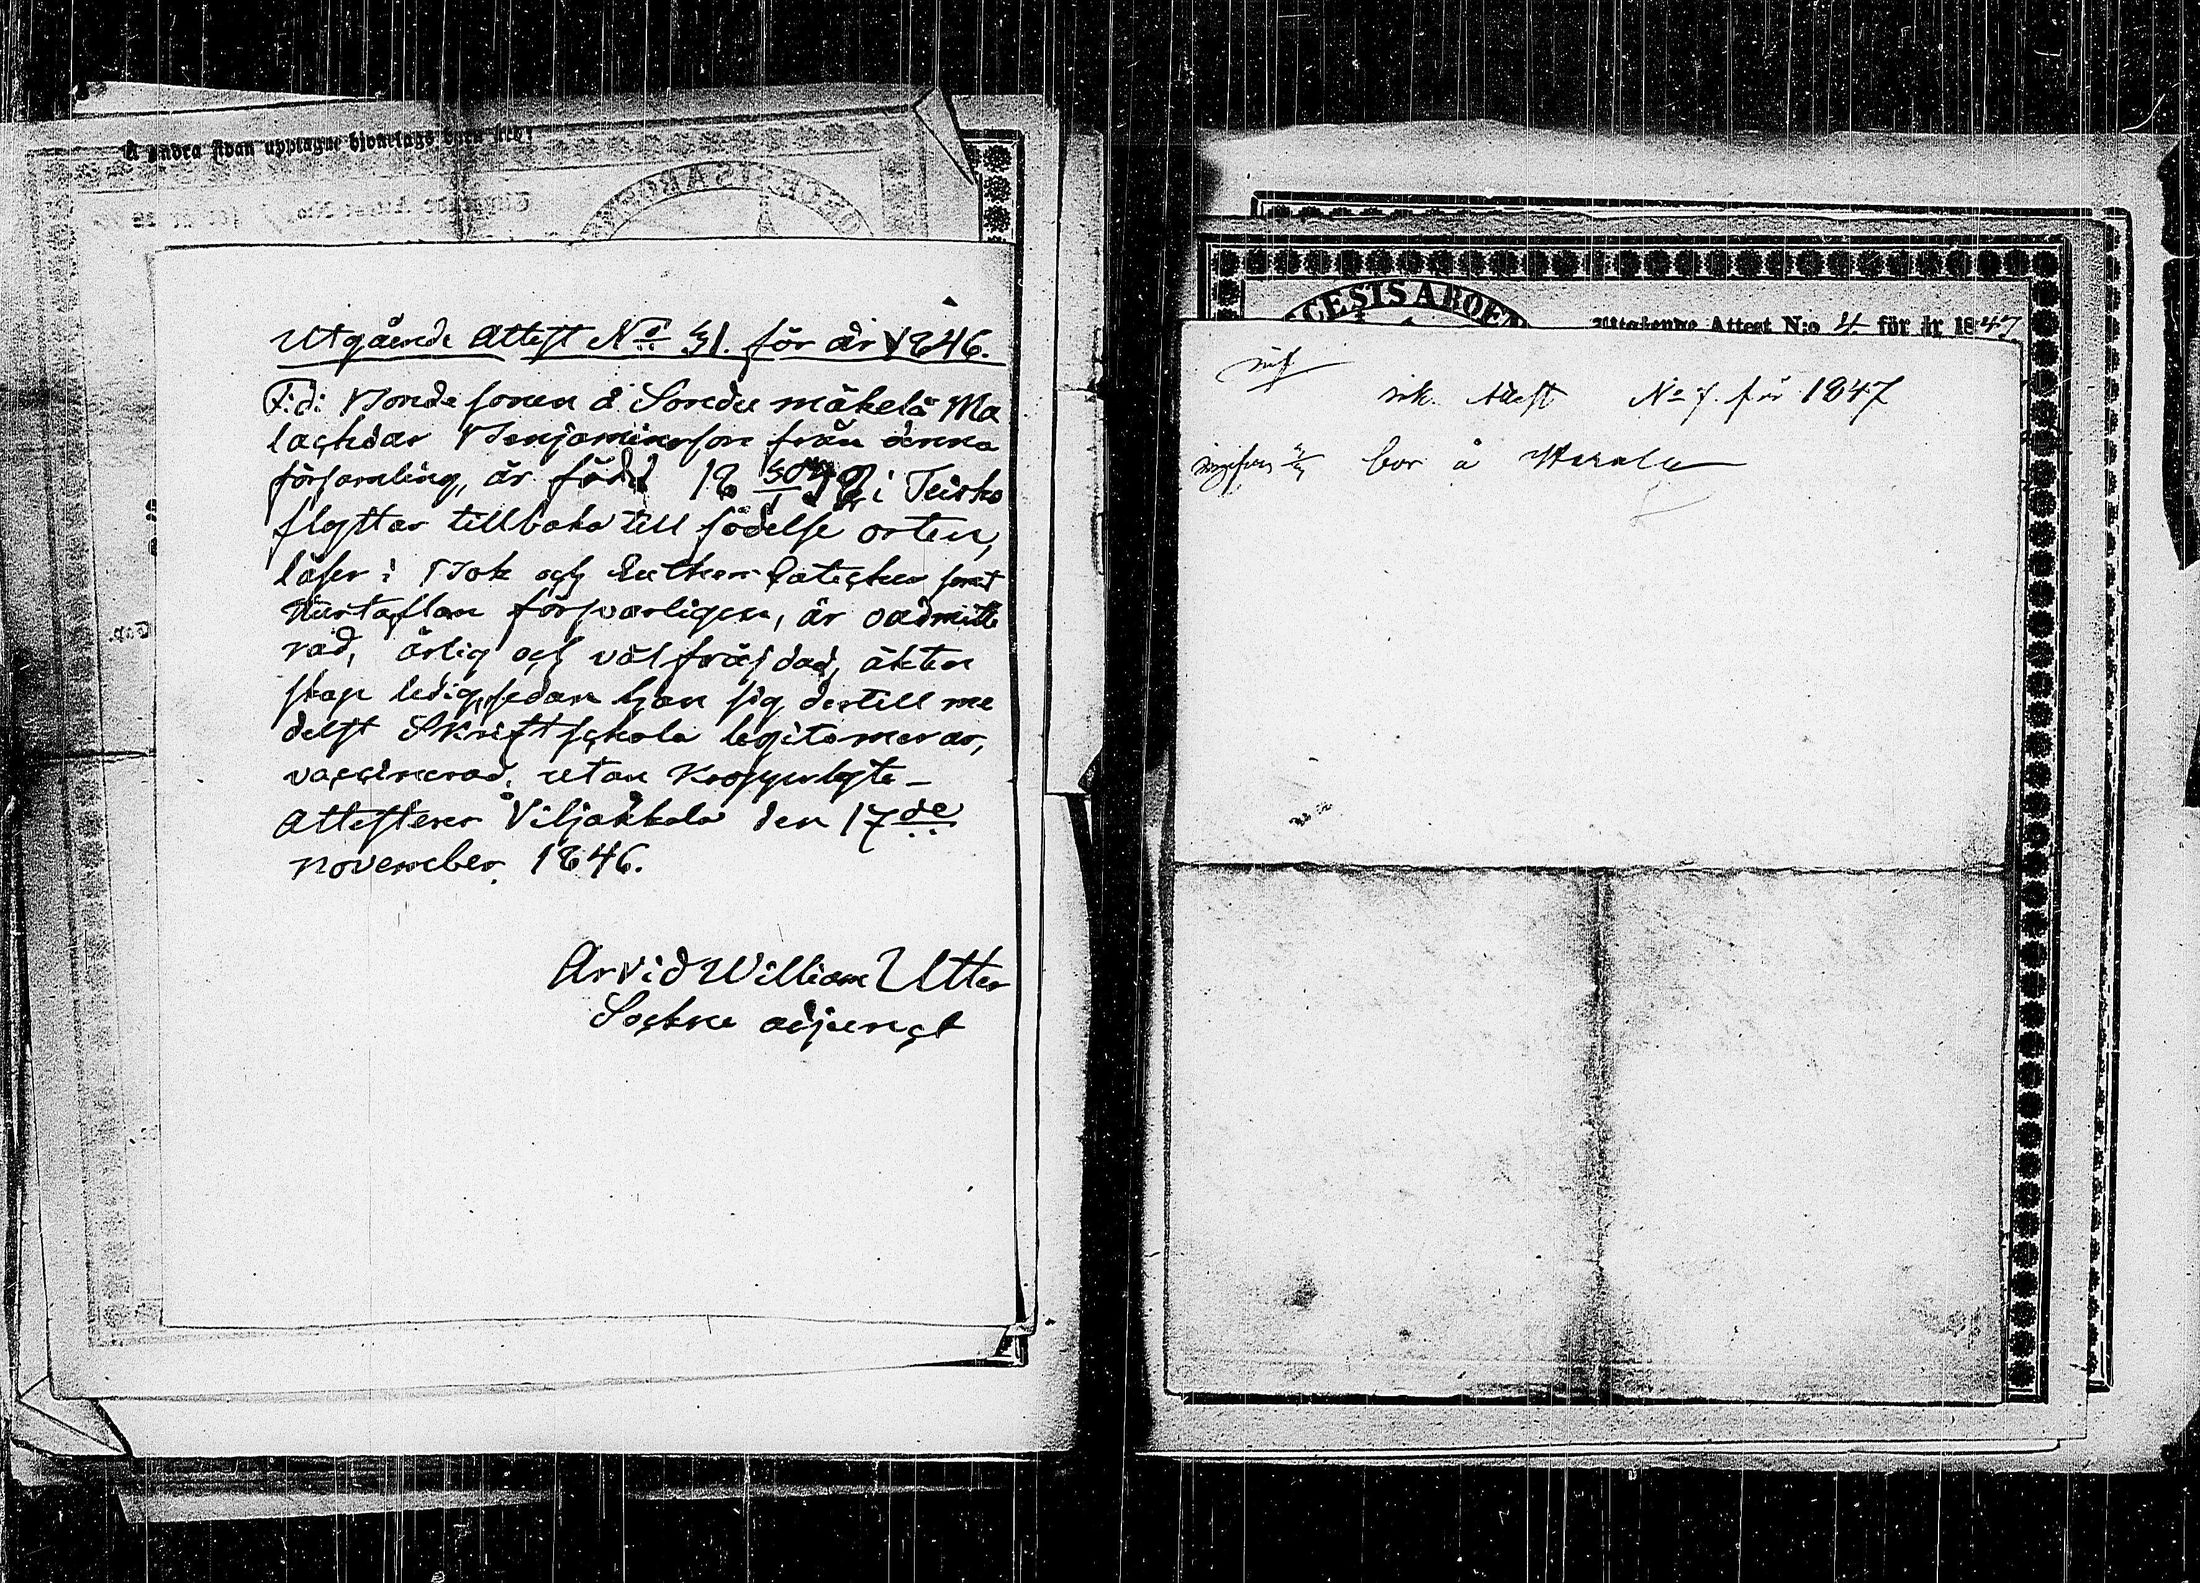 Å andra sidan upptagne hjonelags barn äro:
Utgående Attest No 31. för år 1846.
F.d. Bonde sonen å Sordu mäkelä Ma
lachias Benjaminsson från denna
församling, är född 18 30/1 i Teisko
flyttar tillbaka till födelse orten,
läser i Bok och Lutheri Catechес samt
Hustaflan försvarligen, är oadmitte
rad, ärlig och väl fräjdad, äkten
skap ledig, sedan han sig dertill me
delst Skriftschola legitimerar,
vaccinerad, utan Kropps lyte _
Attesterer Viljakkala den 17de
november 1846.
Arvid William Utter
Sockne adjunct
DIOECESIS ABOENSIS
Utgående Attest N:o 4 för år 1847
ink. Attest No 7. för 1847
bor å